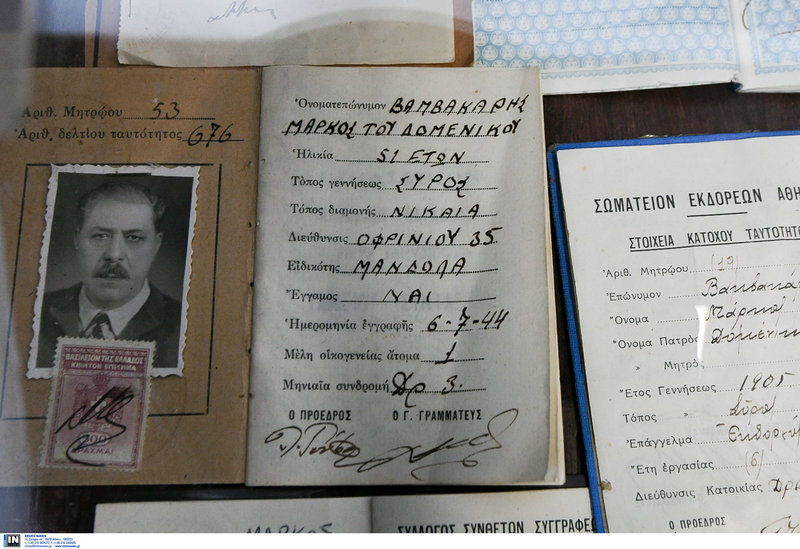 Αριθ. Μητρώου 53
Αριθ. δελτίου ταυτότητος 676
ΒΑΣΙΛΕΙΟΝ ΤΗΣ ΕΛΛΑΔΟΣ
ΚΙΝΗΤΟΝ ΕΠΙΣΗΜΑ
ΔΡΑΧΜΑΙ
Ὀνοματεπώνυμον ΒΑΜΒΑΚΑΡΗΣ
ΜΑΡΚΟΣ ΤΟΥ ΔΟΜΕΝΙΚΟΥ
Ἡλικία 51 ΕΤΩΝ
Τόπος γεννήσεως ΣΥΡΟΣ
Τόπος διαμονής ΝΙΚΑΙΑ
Διεύθυνσις ΟΦΡΙΝΙΟΥ 35
Εἰδικότης ΜΑΝΔΟΛΑ
Ἔγγαμος ΝΑΙ
Ἡμερομηνία ἐγγραφῆς 6-7-44
Μέλη οἰκογενείας ἄτομα 1
Μηνιαία συνδρομή Δρ 3.
Ο ΠΡΟΕΔΡΟΣ Ο Γ. ΓΡΑΜΜΑΤΕΥΣ
ΣΩΜΑΤΕΙΟΝ ΕΚΔΟΡΕΩΝ ΑΘΗ
ΣΤΟΙΧΕΙΑ ΚΑΤΟΧΟΥ ΤΑΥΤΟΤΗΤΟ
Ἀριθ. Μητρώου (19)
Ἐπώνυμον Βαμβακά
Ὄνομα Μάρκο
Ὄνομα Πατρὸς Δομενικ
» Μητρὸς
Ἔτος Γεννήσεως 1905
Τόπος » Σύρο
Ἐπάγγελμα Ἐκδορε
Ἔτη ἐργασίας (6)
Διεύθυνσις Κατοικίας
Ο ΠΡΟΕΔΡΟΣ
ΜΑΡΚΟΣ
ΣΥΛΛΟΓΟΣ ΣΥΝΘΕΤΩΝ ΣΥΓΓΡΑΦΕ
IN